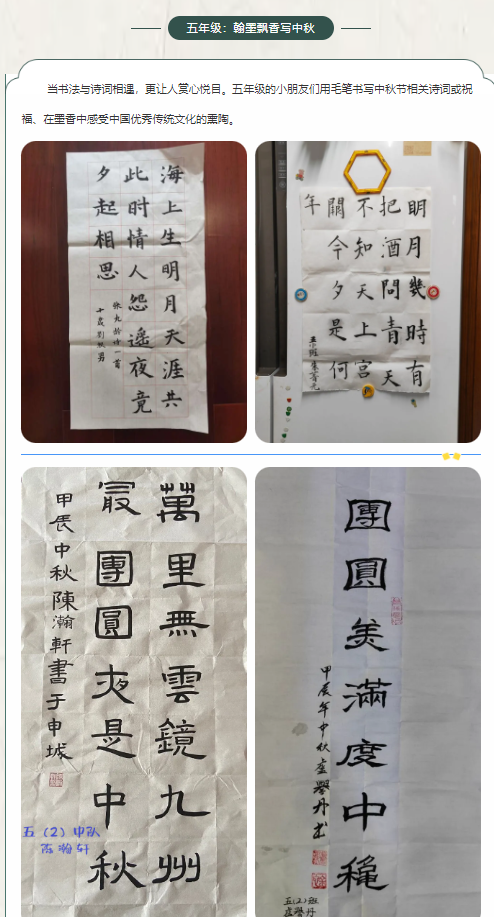 五年级：翰墨飘香写中秋
当书法与诗词相遇，更让人赏心悦目。五年级的小朋友们用毛笔书写中秋节相关诗词或祝
福、在墨香中感受中国优秀传统文化的熏陶。
海上生明月天涯共
此时情人怨遥夜竟
夕起相思
张九龄诗一首
明月幾時有
把酒問青天
不知天上宫
關今夕是何
年
萬里無雲鏡九州
最團圓夜是中秋
甲辰中秋陳瀚軒書于申城
五（2）中队
陈瀚轩
團圓美滿度中穐
甲辰年中秋
五(2)班